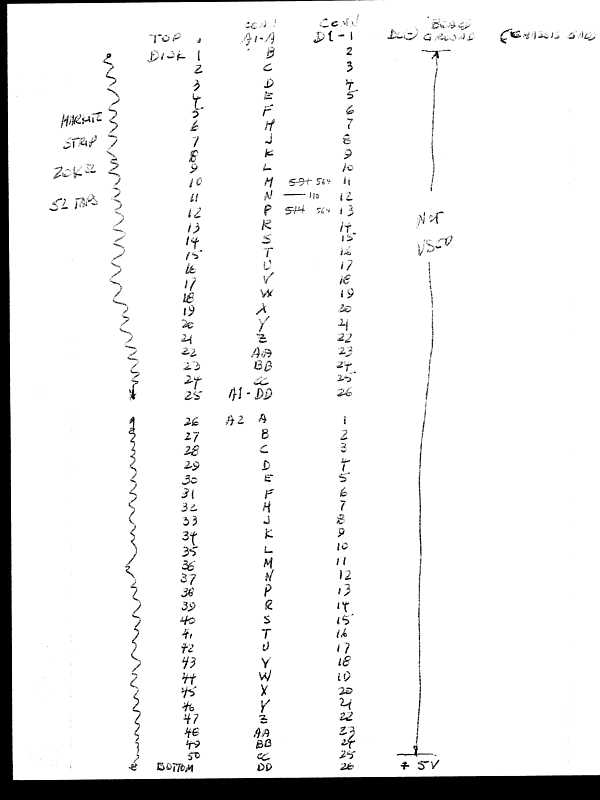 CONN CONN
TOP A1-A D1-1 GROUND
DISK 1 B 2
2 C 3
3 D 4
4 E 5
5 F 6
6 H 7
7 J 8
8 K 9
9 L 10
10 M 564 11
11 N 110 12
12 P 514 564 13
13 R 14
14 S 15
15 T 16
16 U 17
17 V 18
18 W 19
19 X 20
20 Y 21
21 Z 22
22 AA 23
23 BB 24
24 CC 25
25 A1-DD 26
STRIP
52 TAPS
NOT
USED
26 A2 A 1
27 B 2
28 C 3
29 D 4
30 E 5
31 F 6
32 H 7
33 J 8
34 K 9
35 L 10
36 M 11
37 N 12
38 P 13
39 R 14
40 S 15
41 T 16
42 U 17
43 V 18
44 W 19
45 X 20
46 Y 21
47 Z 22
48 AA 23
49 BB 24
50 CC 25
BOTTOM DD 26
+ 5V